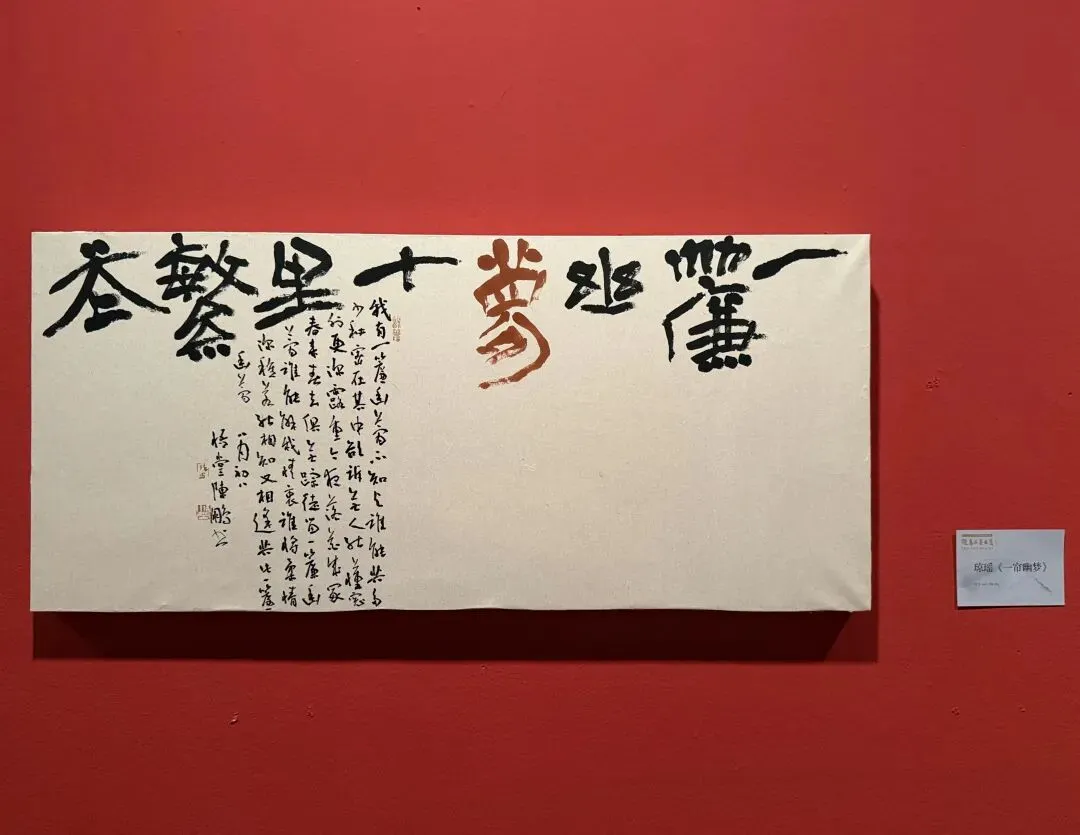 一簾幽夢十里繁
我有一簾幽夢不知與誰能共多
少秘密在其中欲訴無人能懂窗
外更深露重今夜落花成冢
春來春去俱無蹤徒留一簾幽
夢誰能解我情衷誰將柔情
深種若能相知又相逢共此一簾
幽夢 八月初八
悟堂陳鵬書
琼瑶《一帘幽梦》